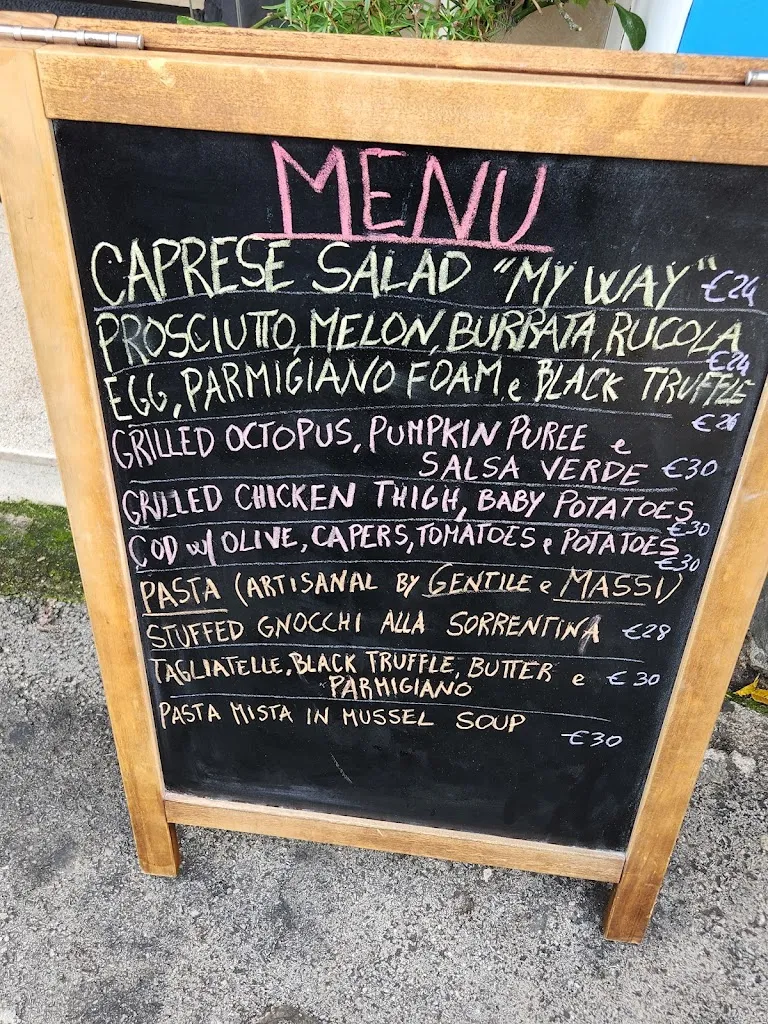 MENU
CAPRESE SALAD "MY WAY" €24
PROSCIUTTO, MELON, BURRATA, RUCOLA
€24
EGG, PARMIGIANO FOAM e BLACK TRUFFLE
€26
GRILLED OCTOPUS, PUMPKIN PUREE e
SALSA VERDE €30
GRILLED CHICKEN THIGH, BABY POTATOES
€30
COD w/ OLIVE, CAPERS, TOMATOES e POTATOES
€30
PASTA (ARTISANAL BY GENTILE e MASSI)
STUFFED GNOCCHI ALLA SORRENTINA €28
TAGLIATELLE, BLACK TRUFFLE, BUTTER e €30
PARMIGIANO
PASTA MISTA IN MUSSEL SOUP
€30